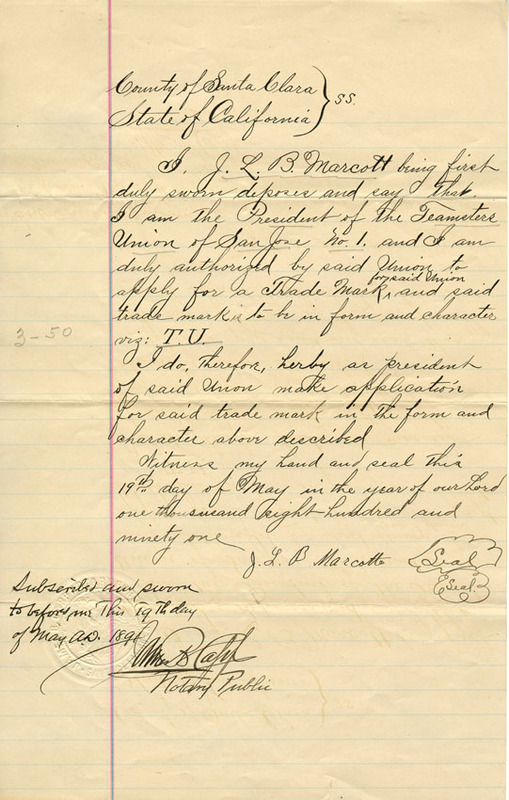 County of Santa Clara } ss.
State of California
I, J. L. B. Marcott being first
duly sworn deposes and say that
I am the President of the Teamsters
Union of San Jose No. 1. and I am
duly authorized by said Union to
apply for a Trade Mark for said Union, and said
trade mark is to be in form and character
viz: T.U.
3-50
I do, therefor, herby as president
of said Union make application
for said trade mark in the form and
character above described
Witness my hand and seal this
19th day of May in the year of our Lord
one thousuand eight hundred and
ninety one
J. L. B Marcotte
Seal
Seal.
Subscribed and sworn
to before me This 19th day
of May A.D. 1891
Notary Public